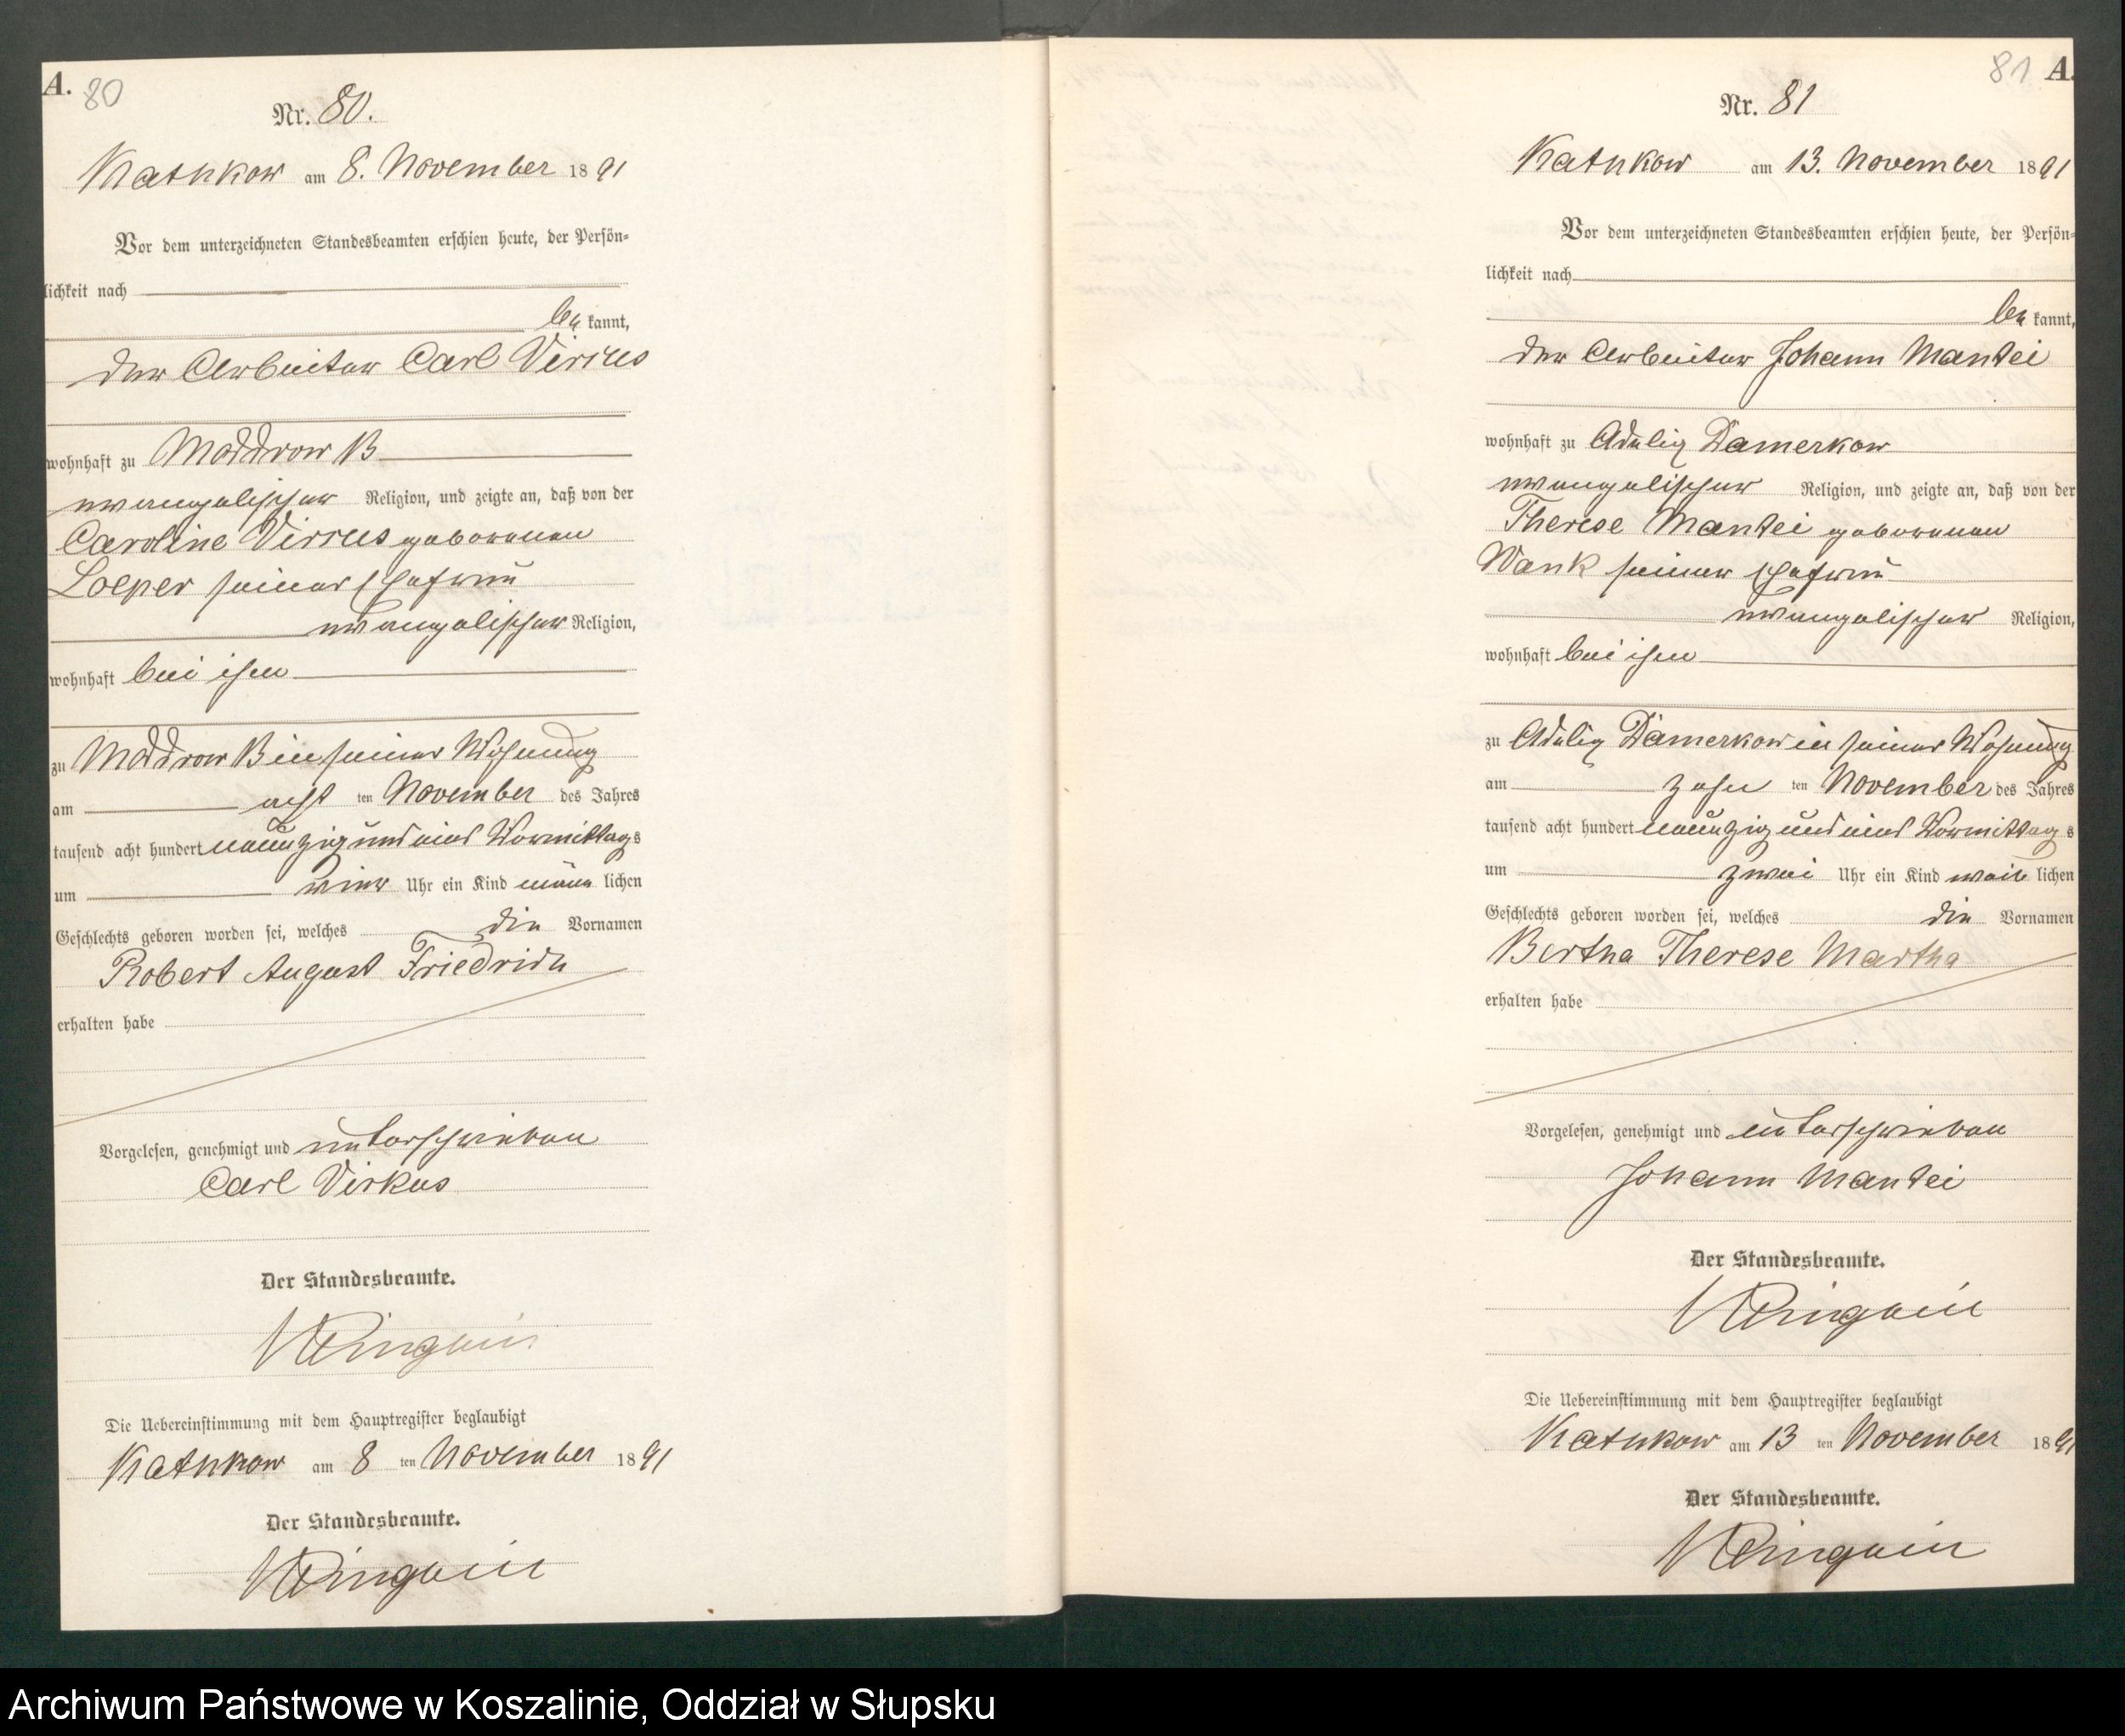 A. 80
Nr. 80.
Kathkow am 8. November 1891
Vor dem unterzeichneten Standesbeamten erschien heute, der Persön-
lichkeit nach
be kannt,
der Arbeiter Carl Virkus
wohnhaft zu Moddrow B
evangelischer Religion, und zeigte an, daß von der
Caroline Virkus geborenen
Loeper seiner Ehefrau
evangelischer Religion,
wohnhaft bei ihm
zu Moddrow B in seiner Wohnung
am acht ten November des Jahres
tausend acht hundert neunzig und eins Vormittags
um vier Uhr ein Kind männ lichen
Geschlechts geboren worden sei, welches die Vornamen
Robert August Friedrich
erhalten habe
Vorgelesen, genehmigt und unterschrieben
Carl Virkus
Der Standesbeamte.
Die Uebereinstimmung mit dem Hauptregister beglaubigt
Kathkow am 8 ten November 1891
Der Standesbeamte.
81 A.
Nr. 81
Kathkow am 13. November 1891
Vor dem unterzeichneten Standesbeamten erschien heute, der Persön-
lichkeit nach
be kannt,
der Arbeiter Johann Mantei
wohnhaft zu Adelig Damerkow
evangelischer Religion, und zeigte an, daß von der
Therese Mantei geborenen
Wank seiner Ehefrau
evangelischer Religion,
wohnhaft bei ihm
zu Adelig Damerkow in seiner Wohnung
am zehn ten November des Jahres
tausend acht hundert neunzig und eins Vormittag s
um zwei Uhr ein Kind weib lichen
Geschlechts geboren worden sei, welches die Vornamen
Bertha Therese Martha
erhalten habe
Vorgelesen, genehmigt und unterschrieben
Johann Mantei
Der Standesbeamte.
Die Uebereinstimmung mit dem Hauptregister beglaubigt
Kathkow am 13 ten November 1891
Der Standesbeamte.
Archiwum Państwowe w Koszalinie, Oddział w Słupsku